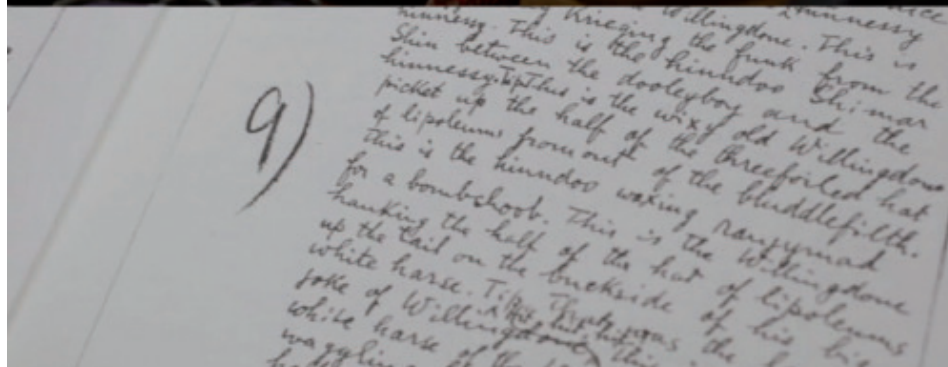 9)
Hinnessy
Willingdone. This is
Krieging the funk from the
hinnessy. This is the hinndoo Shimar
Shin between the dooleyboy and the
hinnessy. Tip. This is the wixy old Willingdone
picket up the half of the threefoiled hat
of lipoleums fromout of the bluddlefilth.
This is the hinndoo waxing ranjymad
for a bombshoob. This is the Willingdone
hanking the half of the hat of lipoleums
up the tail on the buckside of his big
white harse. Tip. That was the
joke of Willingdone. This
white harse of the
waggling